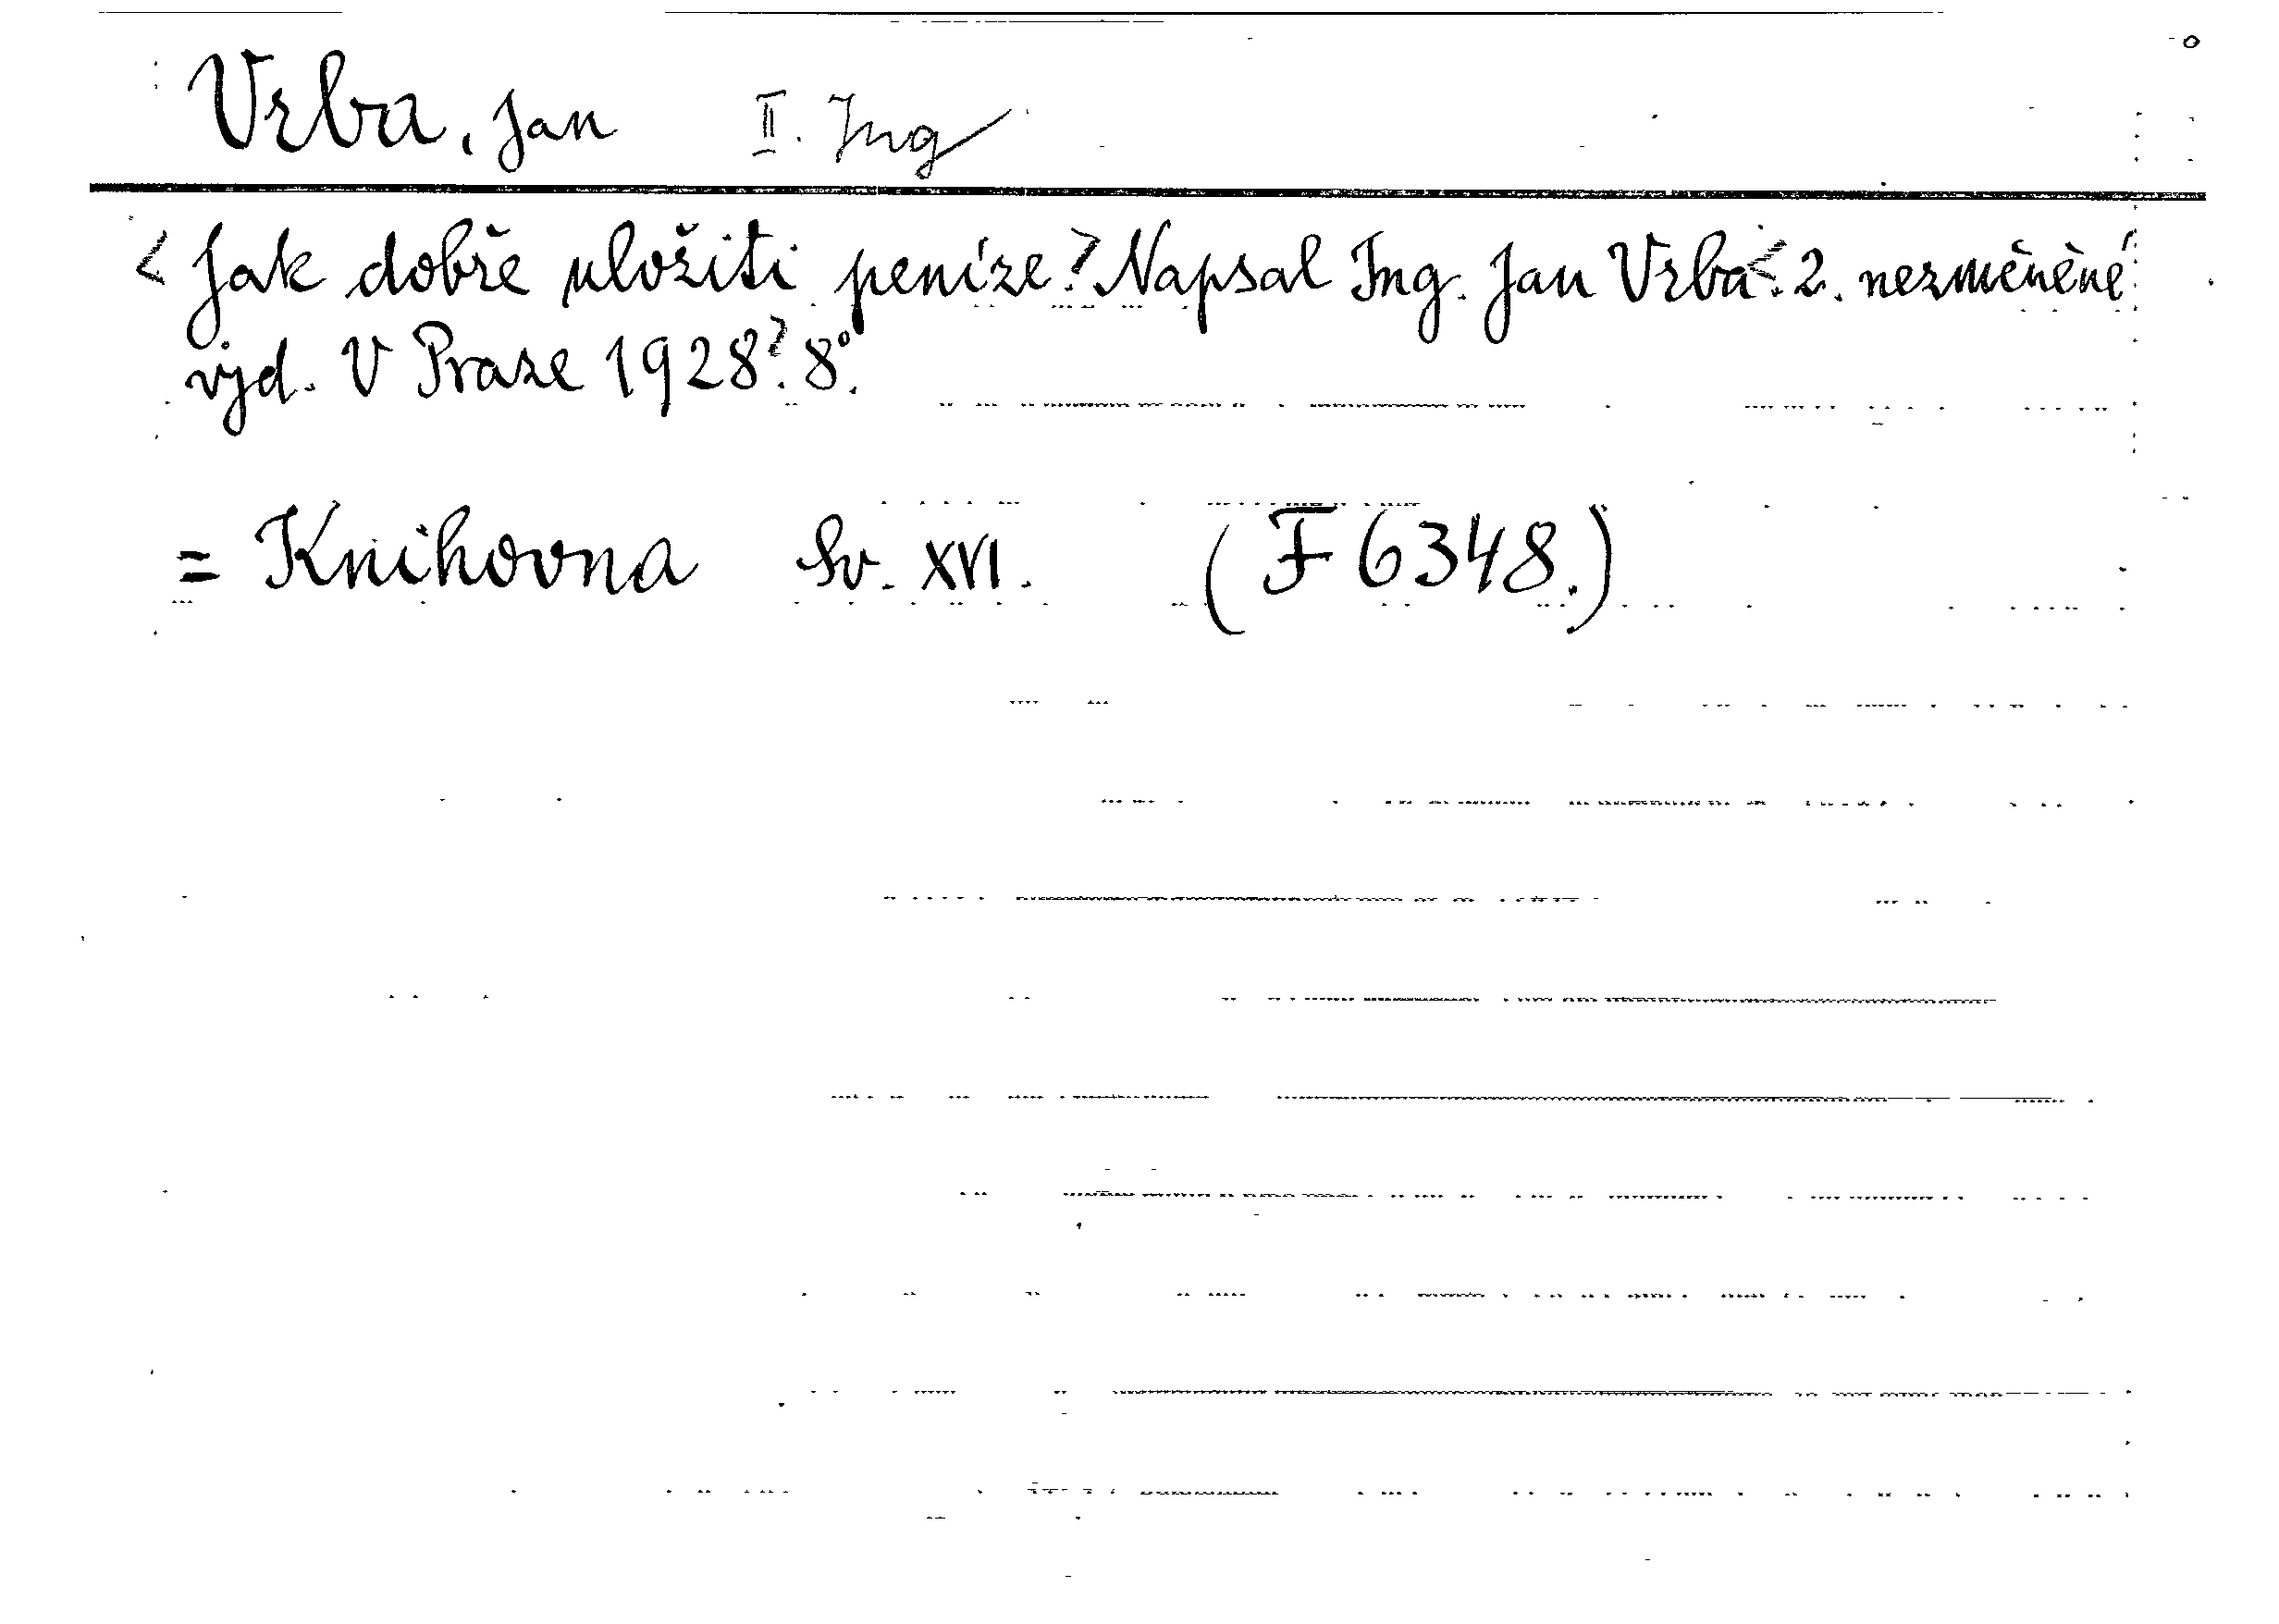 Vrba, Jan II. Ing
< Jak dobře uložiti peníze? Napsal Ing. Jan Vrba <. 2. nezměněné
vyd. V Praze 1928? 8°.
= Knihovna Sv. XVI. (F 6348.)